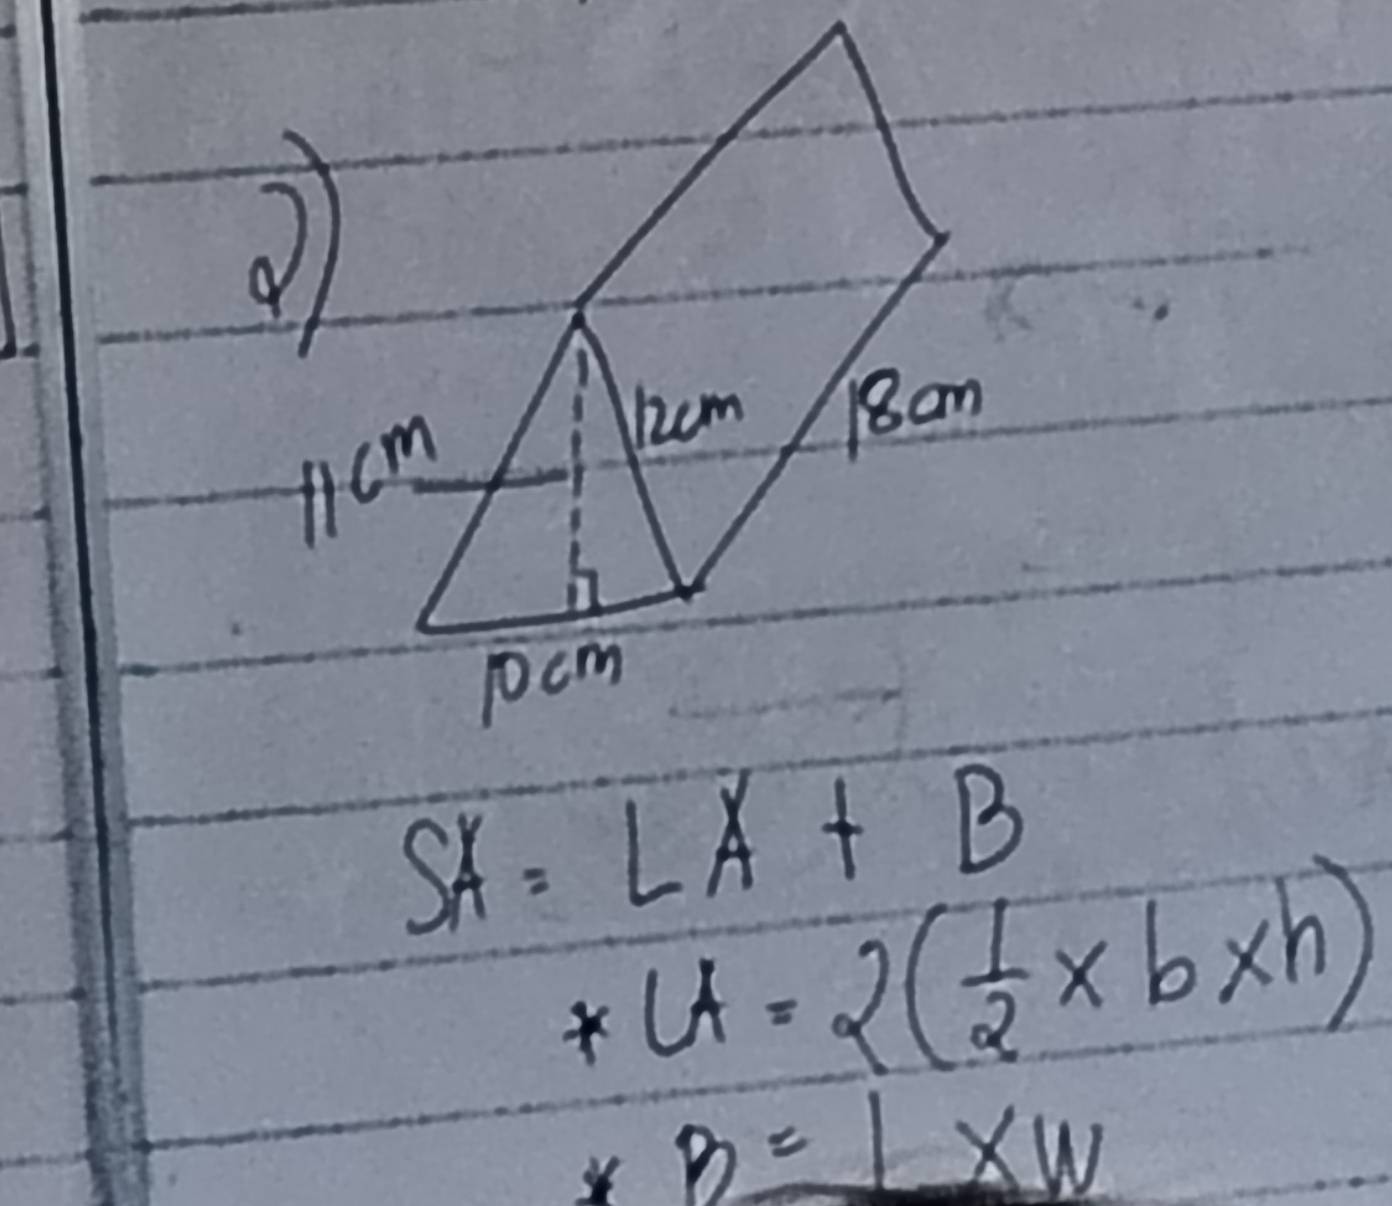 2)
11cm
12cm
18cm
10cm
SA = LA + B
* LA = 2(1/2 × b × h)
* B = l × w